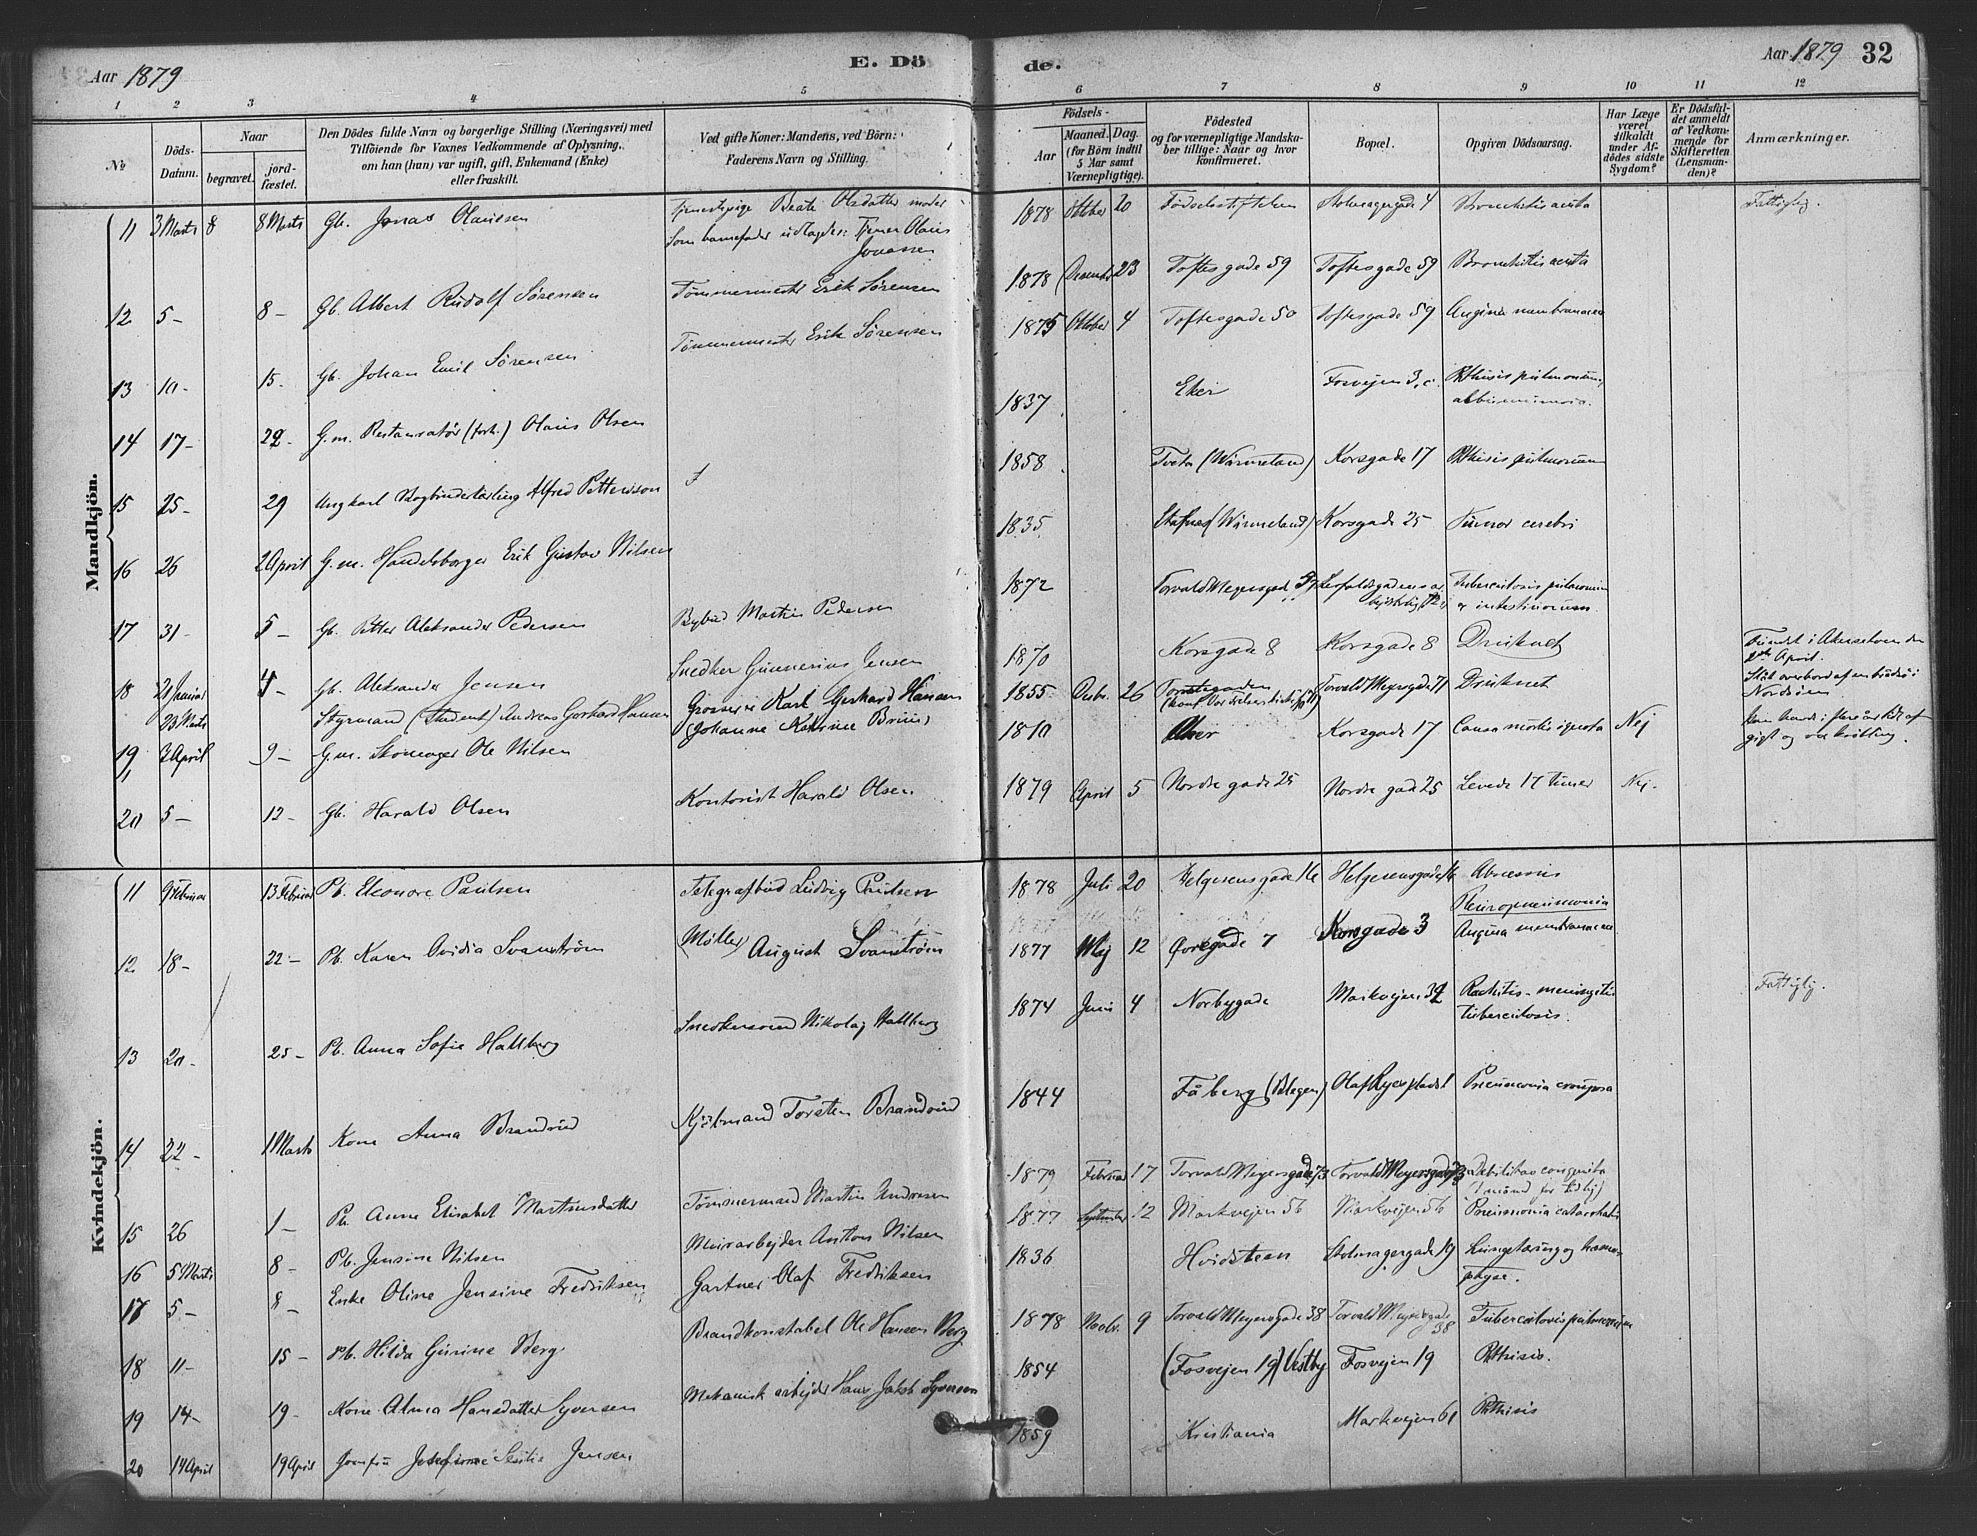 Aar 1879
E. Döde.
Aar 1879 32
1 2 3 4 5 6 7 8 9 10 11 12
No
Döds-Datum.
Naar
begravet.
jord-fæstet.
Den Dödes fulde Navn og borgerlige Stilling (Næringsvei) med
Tilföiende for Voxnes Vedkommende af Oplysning,
om han (hun) var ugift, gift, Enkemand (Enke)
eller fraskilt.
Ved gifte Koner: Mandens, ved Börn:
Faderens Navn og Stilling.
Födsels-
Aar
Maaned. Dag.
(for Börn indtil
5 Aar samt
Værnepligtige).
Födested
og for værnepligtige Mandska-
ber tillige: Naar og hvor
konfirmeret.
Bopæl.
Opgiven Dödsaarsag.
Har Læge
været
tilkaldt
under Af-
dödes sidste
Sygdom?
Er Dödsfal-
det anmeldt
af Vedkom-
mende for
Skifteretten
(Lensman-
den)?
Anmærkninger.
Mandkjön.
11 3 Marts 8 8 Marts Gb. Jonas Olaussen Tjenestepige Beate Olsdatter moder 1878 Oktober 20 Födselsstiftelsen Stolmagergade 4 Bronchitis acuta Fattiglig.
Som barnefader udlagdes: Tjener Olaus
Jonassen
12 5 - 8 - Gb. Albert Rudolf Sørensen Tömmermester Erik Sørensen 1878 December 23 Toftesgade 59 Toftesgade 59 Bronchitis acuta
13 10 - 15 - Gb. Johan Emil Sörensen Tömmermester Erik Sörensen 1875 Oktober 4 Toftesgade 50 Toftesgade 59 Angina membranacea
14 17 - 22 - G.m. Restauratör (forh.) Olaus Olsen 1837 Eker Fosvejen 3, c. Phthisis pulmonum,
albuminuria.
15 25 - 29 Ungkarl Bogbinderlærling Alfred Pettersson 1858 Tveta (Wärmeland) Korsgade 17 Phthisis pulmonum
16 26 2 April G.m. Handelsborger Erik Gustav Nilsen 1835 Stafnes (Wärmeland) Korsgade 25 Tumor cerebri
17 31 - 5 - Gb. Petter Aleksander Pedersen Bybud Martin Pedersen 1872 Torvald Meyersgade Tuberculosis pulmonum
& intestinorum.
18 21 Januar 4 - Gb. Aleksander Jensen Snedker Gunnerius Jensen 1870 Korsgade 8 Korsgade 8 Druknet Fundet i Akerselven den
2den April.
23 Marts Styrmand (Student) Andreas Gerhard Hansen Grosserer Karl Gerhard Hansen 1855 Decbr. 26 Torvald Meyersgade 71 Druknet Slåt overbord af en brådsö i
Nordsöen
(Johanne Katrine Bruun)
19 3 April 9 - G.m. Skomager Ole Nilsen 1810 Aker Korsgade 17 Causa mortis ignota Nej
20 5 - 12 - Gb. Harald Olsen Kontorist Harald Olsen 1879 April 5 Nordre gade 25 Nordre gade 25 Levede 17 timer Nej.
Kvindekjön.
11 9 Februar 13 Februar Pb. Eleonore Paulsen Telegrafbud Ludvig Paulsen 1878 Juli 20 Helgesensgade 16 Helgesensgade 16 Abscessus
Pleuropneumonia
12 18 - 22 - Pb. Karen Ovidia Svanström (Møller) August Svanström 1877 Maj 12 Övregade 7 Korsgade 3 Angina membranacea
13 20 - 25 - Pb. Anna Sofie Hallberg Snedkersvend Nikolaj Hallberg 1874 Juni 4 Norbygade Markvejen 32 Rachitis - meningitis
tuberculosis. Fattiglig.
14 22 - 1 Marts Kone Anna Brandvid Kjörmand Torsten Brandvid 1844 Fåberg (Belagen) Olaf Ryes plads 1 Pneumonia crouposa
15 26 1 - Pb. Anne Elisabet Martinsdatter Tömmermand Martin Andresen 1879 Februar 17 Torvald Meyersgade 73 Torvald Meyersgade 73 Debilitas congenita
(1 månd for tidlig)
16 5 Marts 8 - Pb. Jensine Nilsen Murarbejder Anton Nilsen 1877 September 12 Markvejen 56 Markvejen 56 Pneumonia catarrhalis
17 5 - 8 - Enke Oline Jensine Fredriksen Gartner Olaf Fredriksen 1836 Hvidsteen Stolmagergade 19 Lungetæring og hæmop-
tyse.
18 11 - 15 - Pb. Hilda Gusine Berg Brandkonstabel Ole Hansen Berg 1878 Novbr. 9 Torvald Meyersgade 38 Torvald Meyersgade
38 Tuberculosis pulmonum
19 14 - 19 - Kone Alma Hansdatter Syversen Mekanisk arbejder Hans Jakob Syversen 1854 (Fosvejen 19) Vestby Fosvejen 19 Phthisis.
20 14 April 19 April Jomfru Josefine Jensen 1859 Kristiania Markvejen 61 Phthisis